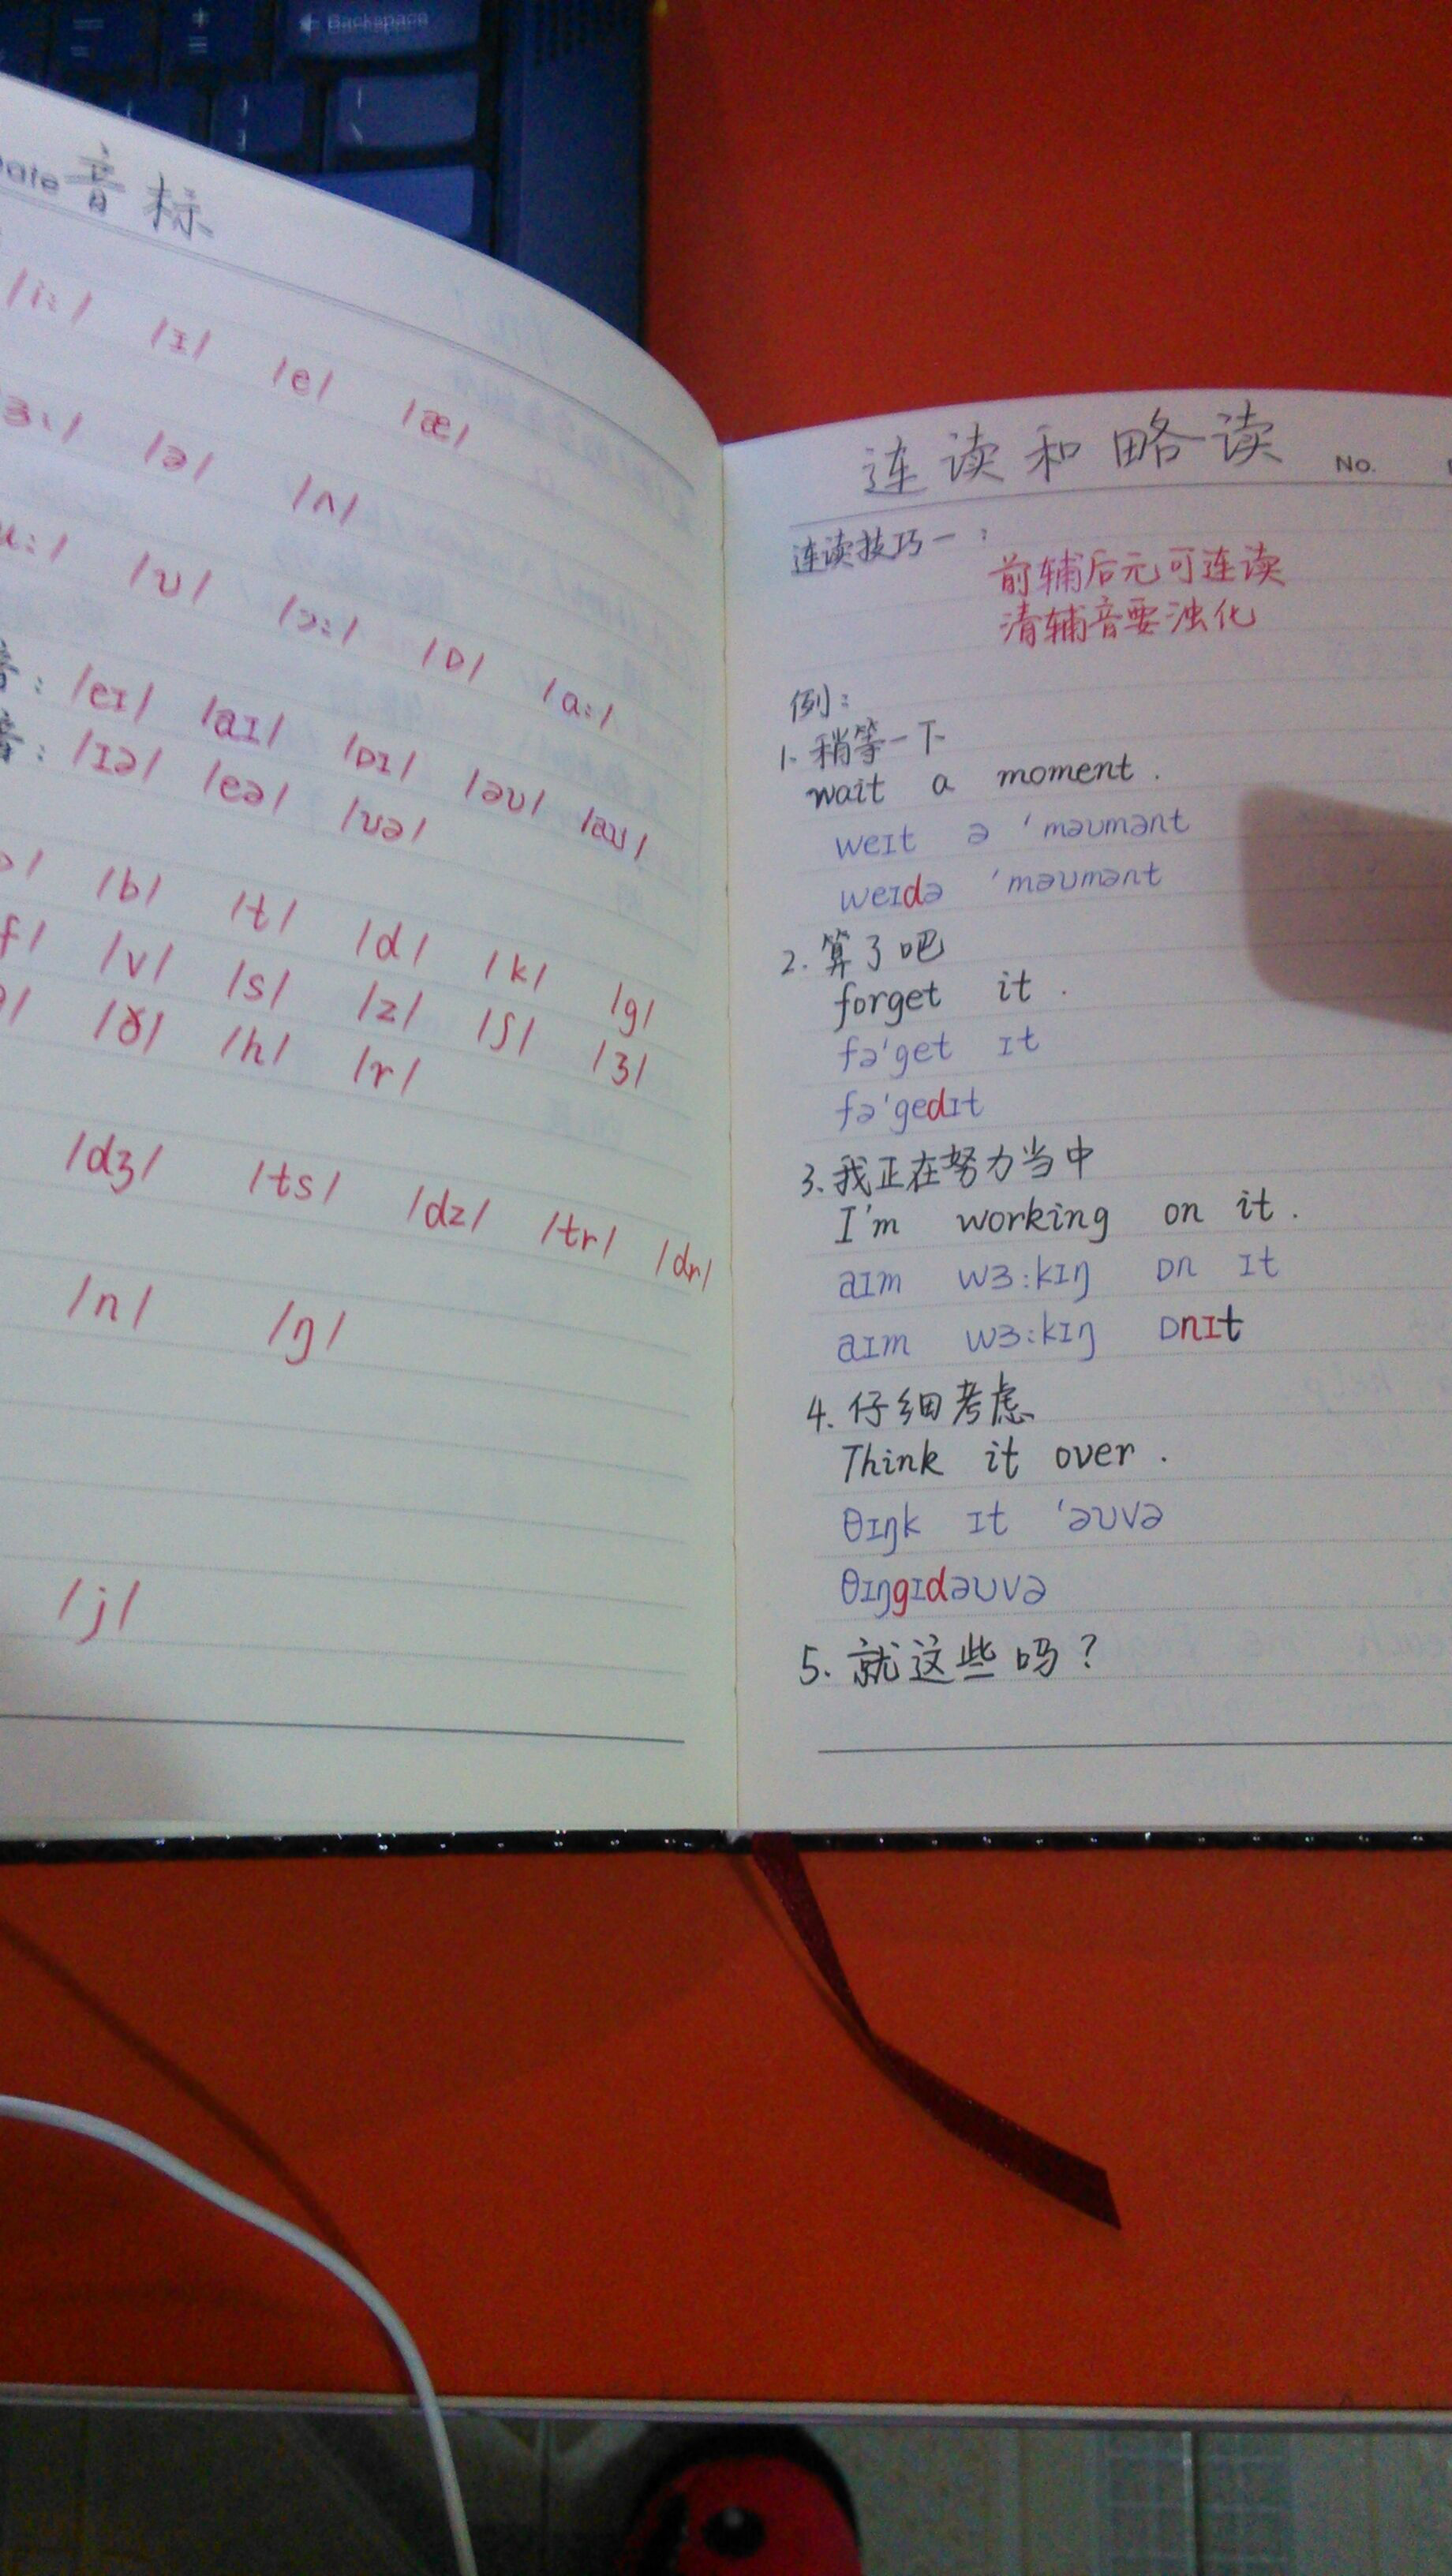 Backspace
音标
/i:/ /ɪ/ /e/ /æ/
/ə/ /ʌ/
/ʊ/ /ɔ:/ /ɒ/ /ɑ:/
: /eɪ/ /aɪ/ /ɒɪ/ /əʊ/ /aʊ/
: /ɪə/ /eə/ /ʊə/
/b/ /t/ /d/ /k/ /g/
/v/ /s/ /z/ /ʃ/ /ʒ/
/ð/ /h/ /r/
/dʒ/ /ts/ /dz/ /tr/ /dr/
/n/ /ŋ/
/j/
连读和略读 No.
连读技巧一:
前辅后元可连读
清辅音要浊化
例:
1. 稍等一下
wait a moment.
weɪt ə 'məʊmənt
weɪdə 'məʊmənt
2. 算了吧
forget it.
fə'get ɪt
fə'gedɪt
3. 我正在努力当中
I'm working on it.
aɪm wɜ:kɪŋ ɒn ɪt
aɪm wɜ:kɪŋ ɒnɪt
4. 仔细考虑
Think it over.
θɪŋk ɪt 'əʊvə
θɪŋgɪdəʊvə
5. 就这些吗?